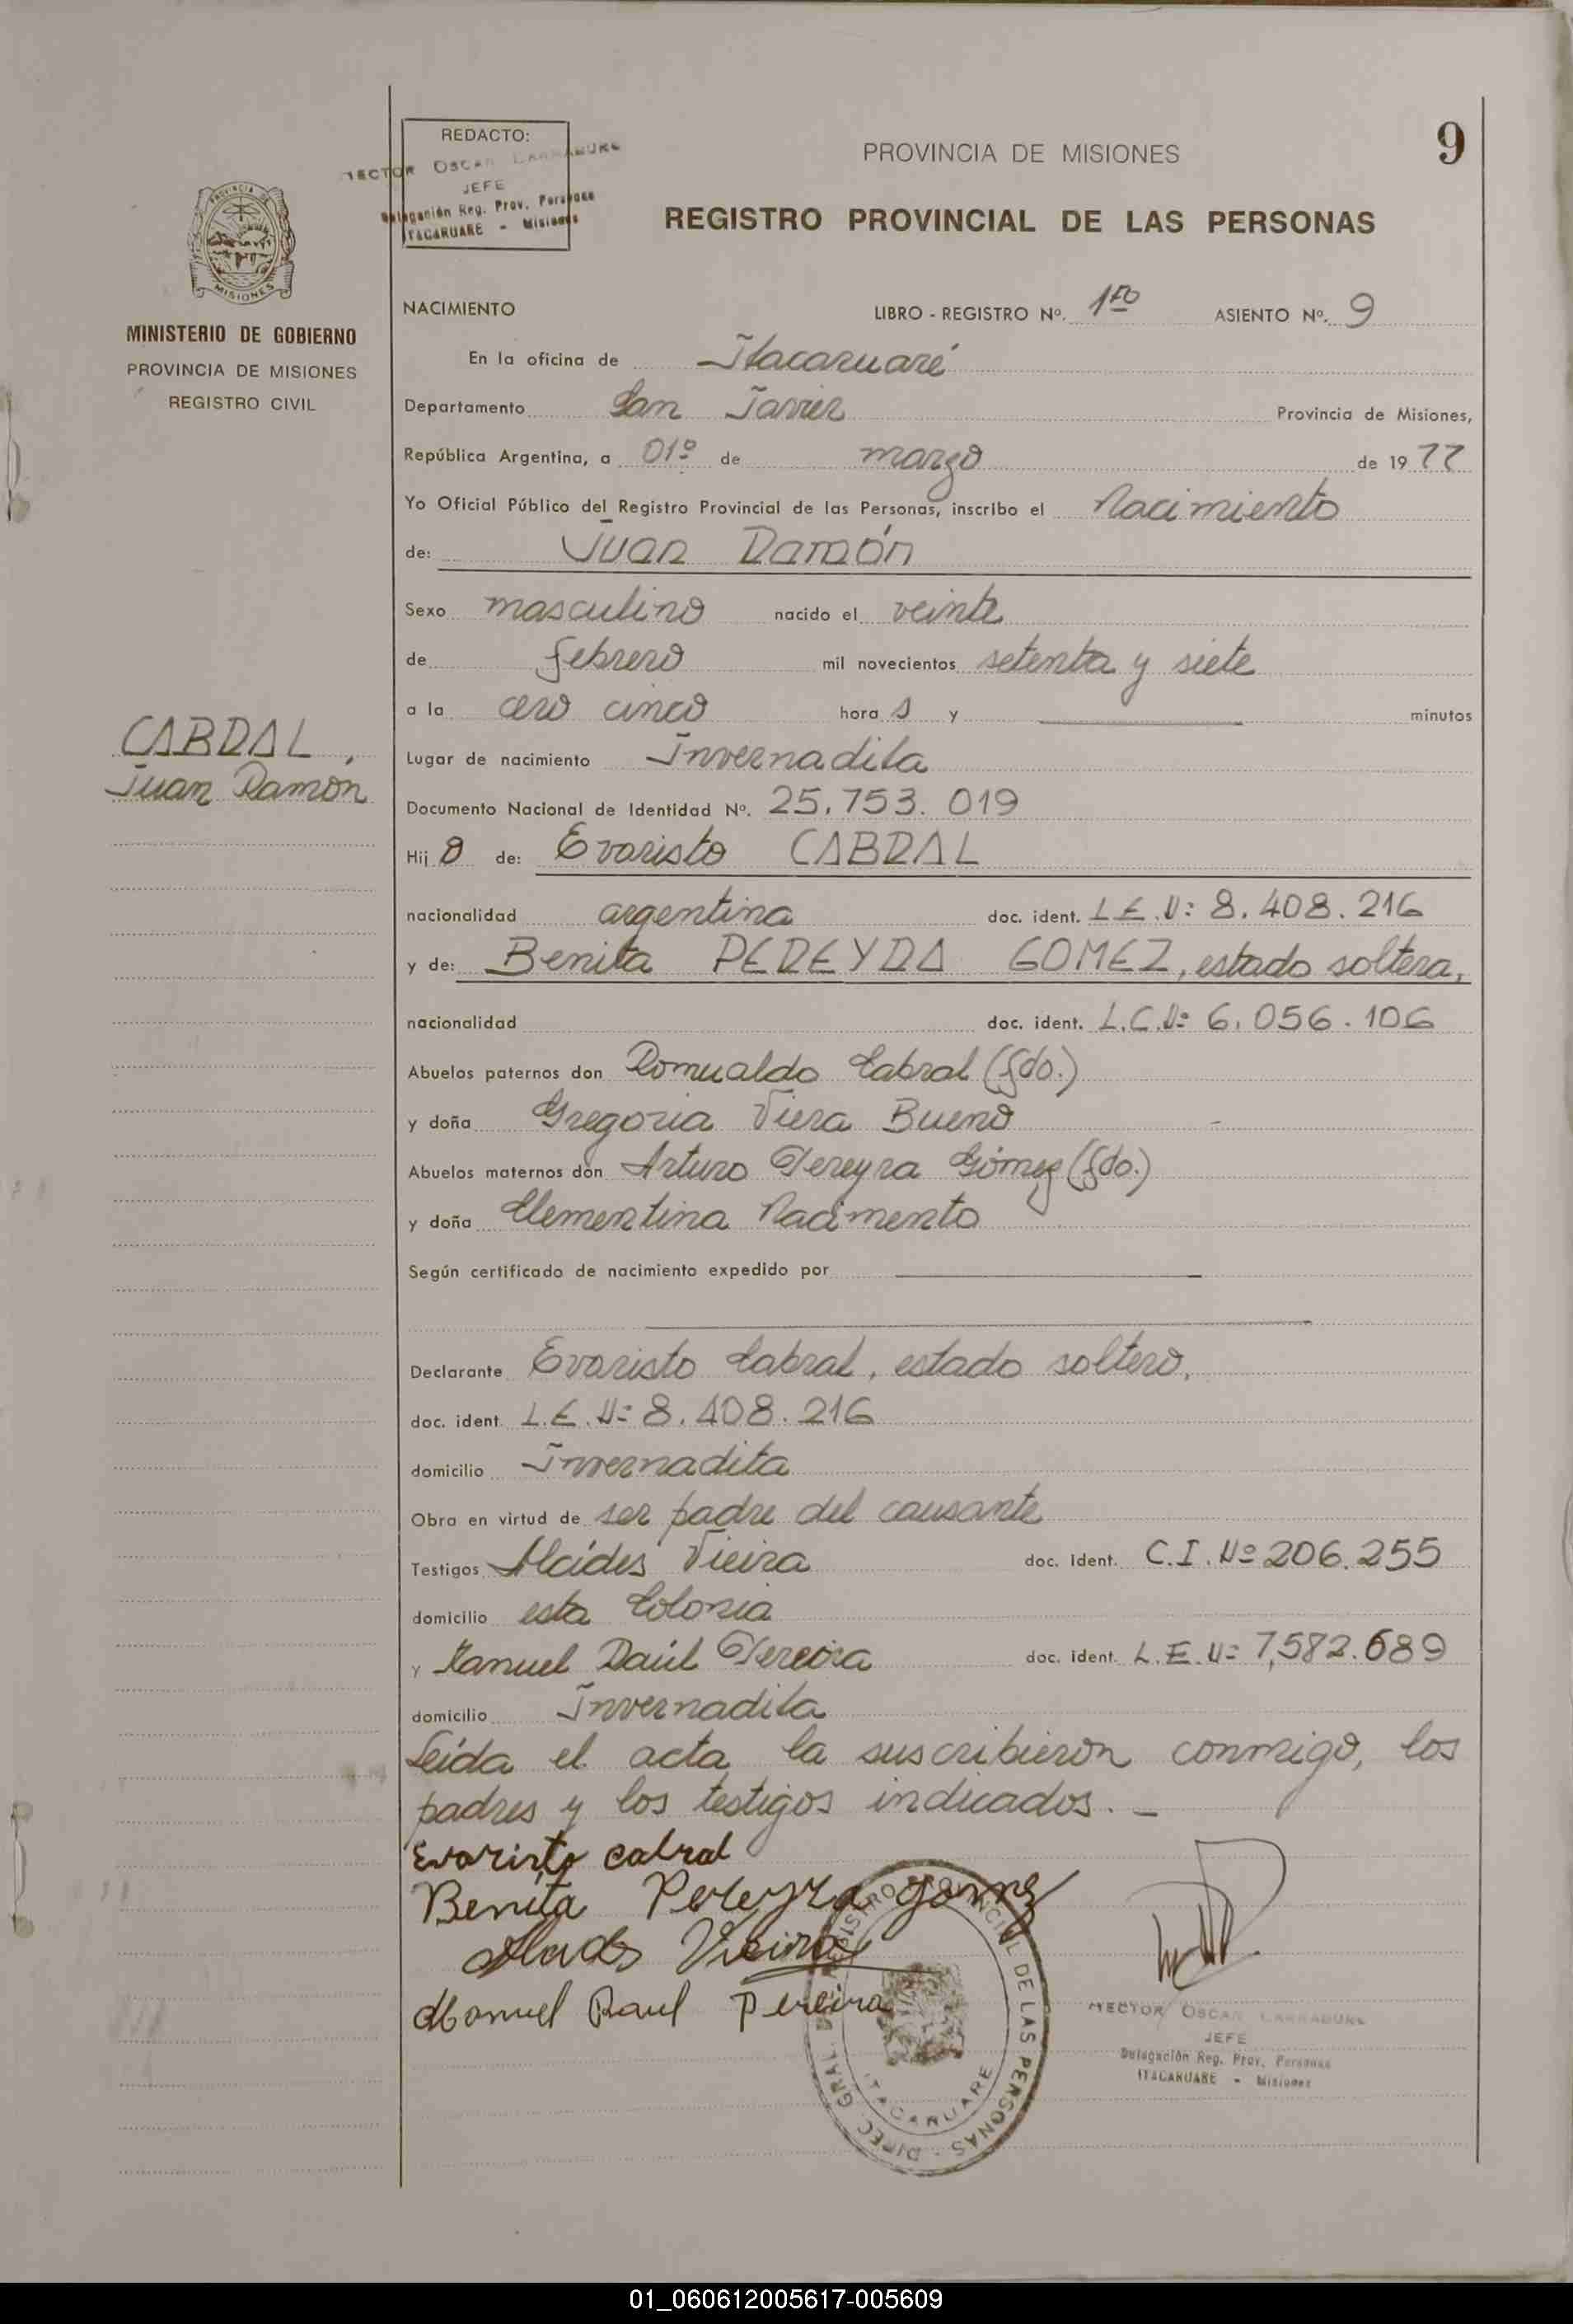 REDACTO:
HECTOR OSCAR LARRABURE
JEFE
Delegación Reg. Prov. Personas
ITACARUARE - Misiones
PROVINCIA DE MISIONES
9
REGISTRO PROVINCIAL DE LAS PERSONAS
MISIONES
MINISTERIO DE GOBIERNO
PROVINCIA DE MISIONES
REGISTRO CIVIL
NACIMIENTO LIBRO - REGISTRO Nº. 1ro ASIENTO Nº. 9
En la oficina de Itacaruaré
Departamento San Javier Provincia de Misiones,
República Argentina, a 01º de marzo de 19 77
Yo Oficial Público del Registro Provincial de las Personas, inscribo el Nacimiento
de: Juan Ramón
Sexo masculino nacido el veinte
de febrero mil novecientos setenta y siete
a la cero cinco hora s y minutos
CABRAL,
Juan Ramón
Lugar de nacimiento Invernadita
Documento Nacional de Identidad Nº. 25.753.019
Hij o de: Evaristo CABRAL
nacionalidad argentina doc. ident. L.E.Nº 8.408.216
y de: Benita PEREYRA GOMEZ, estado soltera,
nacionalidad doc. ident. L.C.Nº 6.056.106
Abuelos paternos don Romualdo Cabral (fdo.)
y doña Gregoria Viera Bueno
Abuelos maternos don Arturo Pereyra Gómez (fdo.)
y doña Clementina Nacimento
Según certificado de nacimiento expedido por
Declarante Evaristo Cabral, estado soltero,
doc. ident. L.E.Nº 8.408.216
domicilio Invernadita
Obra en virtud de ser padre del causante
Testigos Alcídes Vieira doc. Ident. C.I. Nº 206.255
domicilio esta Colonia
y Manuel Raúl Pereira doc. ident. L.E.Nº 7,582.689
domicilio Invernadita
Leída el acta la suscribieron conmigo, los
padres y los testigos indicados. -
Evaristo Cabral
Benita Pereyra Gomez
Alcides Vieira
Manuel Raul Pereira
DIREC. GRAL. DEL REGISTRO PROVINCIAL DE LAS PERSONAS
ITACARUARE
HECTOR OSCAR LARRABURE
JEFE
Delegación Reg. Prov. Personas
ITACARUARE - Misiones
01_060612005617-005609